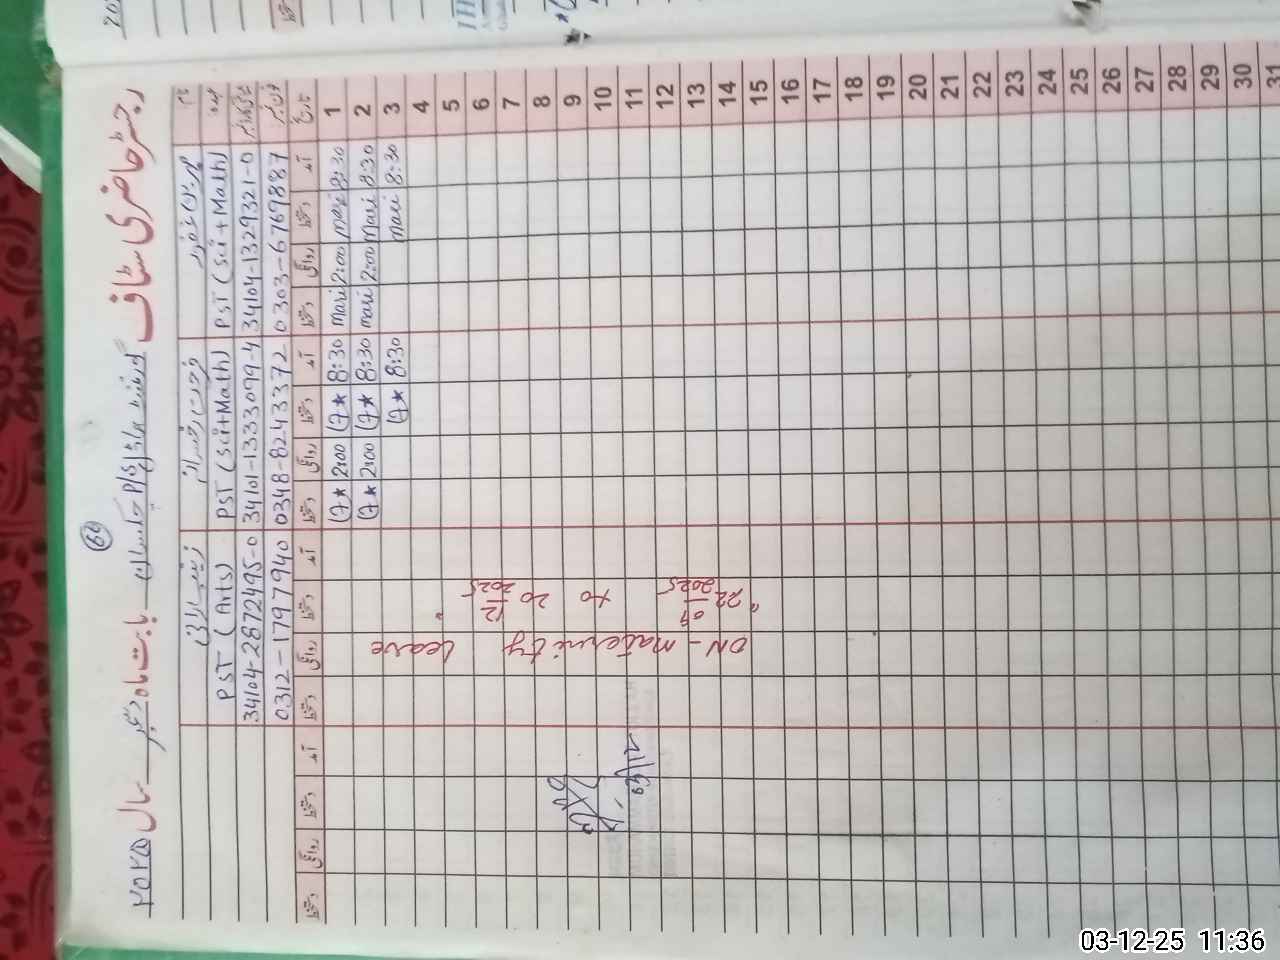 رجسٹر حاضری سٹاف گورنمنٹ بابت ماہ دسمبر سال ۲۰۲۵
69
نام
عہدہ PST (Sci + Math) PST (Sci + Math) PST (Arts)
34104-1329321-0 34101-1333099-4 34104-2872495-0
0303-6769887 0348-8243372 0312-1797940
تاریخ آمد دستخط روانگی دستخط آمد دستخط روانگی دستخط آمد دستخط روانگی دستخط آمد دستخط روانگی دستخط
1 8:30 2:00 8:30 2:00
2 8:30 2:00 8:30 2:00
3 8:30 8:30
4
5
6
7
8
9
10
11
12
13
14
15
16
17
18
19
20
21
22
23
24
25
26
27
28
29
30
31
"22/09/2025 to 20/12/2025"
ON - maternity leave
03/12
03-12-25 11:36